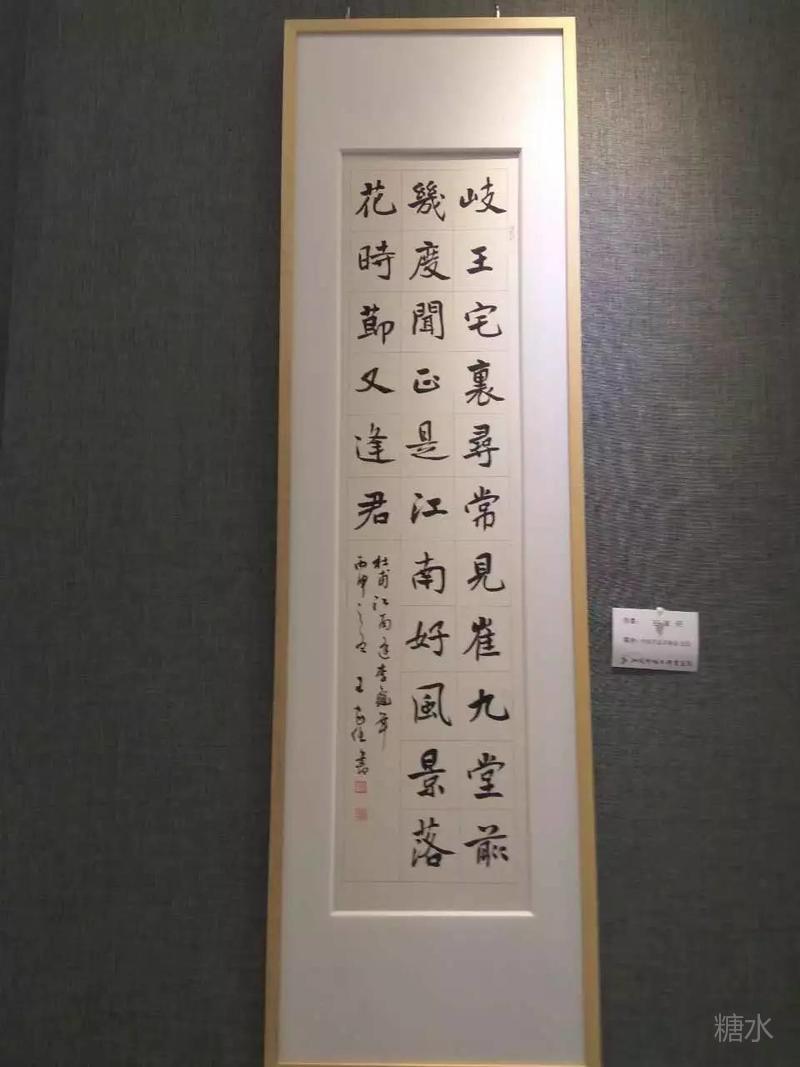 岐王宅裏尋常見崔九堂前
幾度聞正是江南好風景落
花時節又逢君
杜甫江南逢李龜年
丙申之冬 王家佳書
糖水